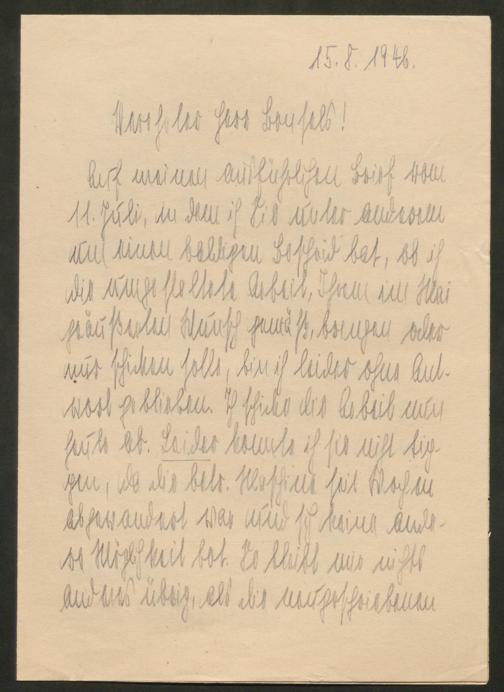 15. 8. 1946.
Verehrter Herr Bonsels!
Auf meinen ausführlichen Brief vom
11. Juli, in dem ich Sie unter anderem
um einen baldigen Bescheid bat, ob ich
die umgestaltete Arbeit, Ihrem im Mai
geäußerten Wunsch gemäß, bringen oder
nur schicken solle, bin ich leider ohne Ant-
wort geblieben. Ich schicke die Arbeit nun
heute ab. Leider konnte ich sie nicht tip-
pen, da die betr. Maschine seit Wochen
abgewandert war und sich keine ande-
re Möglichkeit bot. So bleibt mir nichts
anderes übrig, als die neugeschriebenen